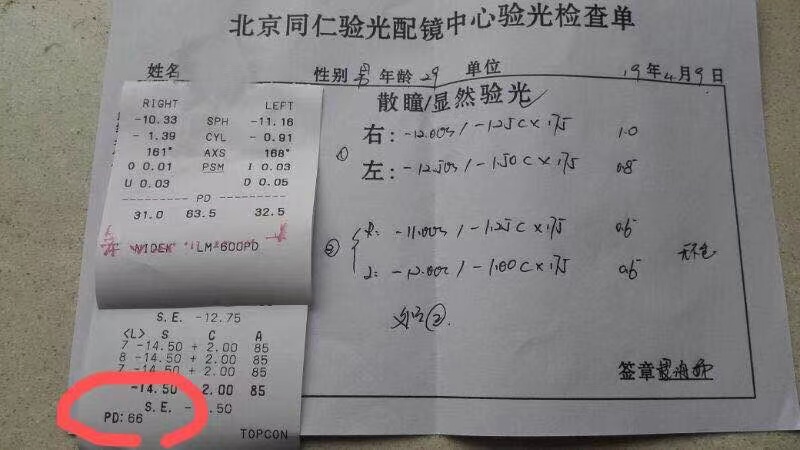 北京同仁验光配镜中心验光检查单
姓名 性别 男 年龄 29 单位 19年4月9日
散瞳/显然验光
① 右: -12.00s / -1.25C×175 1.0
左: -12.50s / -1.50C×175 0.8
② R: -11.00s / -1.25C×175 0.6
L: -12.00s / -1.00C×175 0.6
②.
签章
RIGHT LEFT
-10.33 SPH -11.16
- 1.39 CYL - 0.91
161° AXS 168°
O 0.01 PSM I 0.03
U 0.03 D 0.05
--------- PD ---------
31.0 63.5 32.5
NIDEK LM-600PD
S.E. -12.75
<L> S C A
7 -14.50 + 2.00 85
8 -14.50 + 2.00 85
7 -14.50 + 2.00 85
-14.50 2.00 85
S.E. - .50
PD: 66
TOPCON